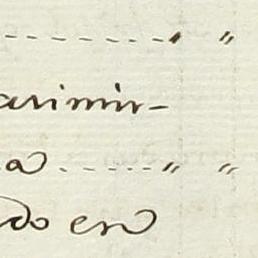 ------ " "
arimir-
a ...... " "
do en